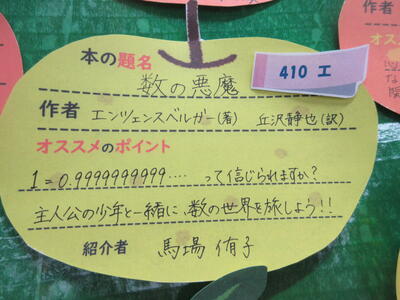 本の題名
数の悪魔
410 エ
作者 エンツェンスベルガー(著) 丘沢静也(訳)
オススメのポイント
1=0.9999999999‥‥ って信じられますか?
主人公の少年と一緒に、数の世界を旅しよう!!
紹介者 馬場 侑子
作者
オス